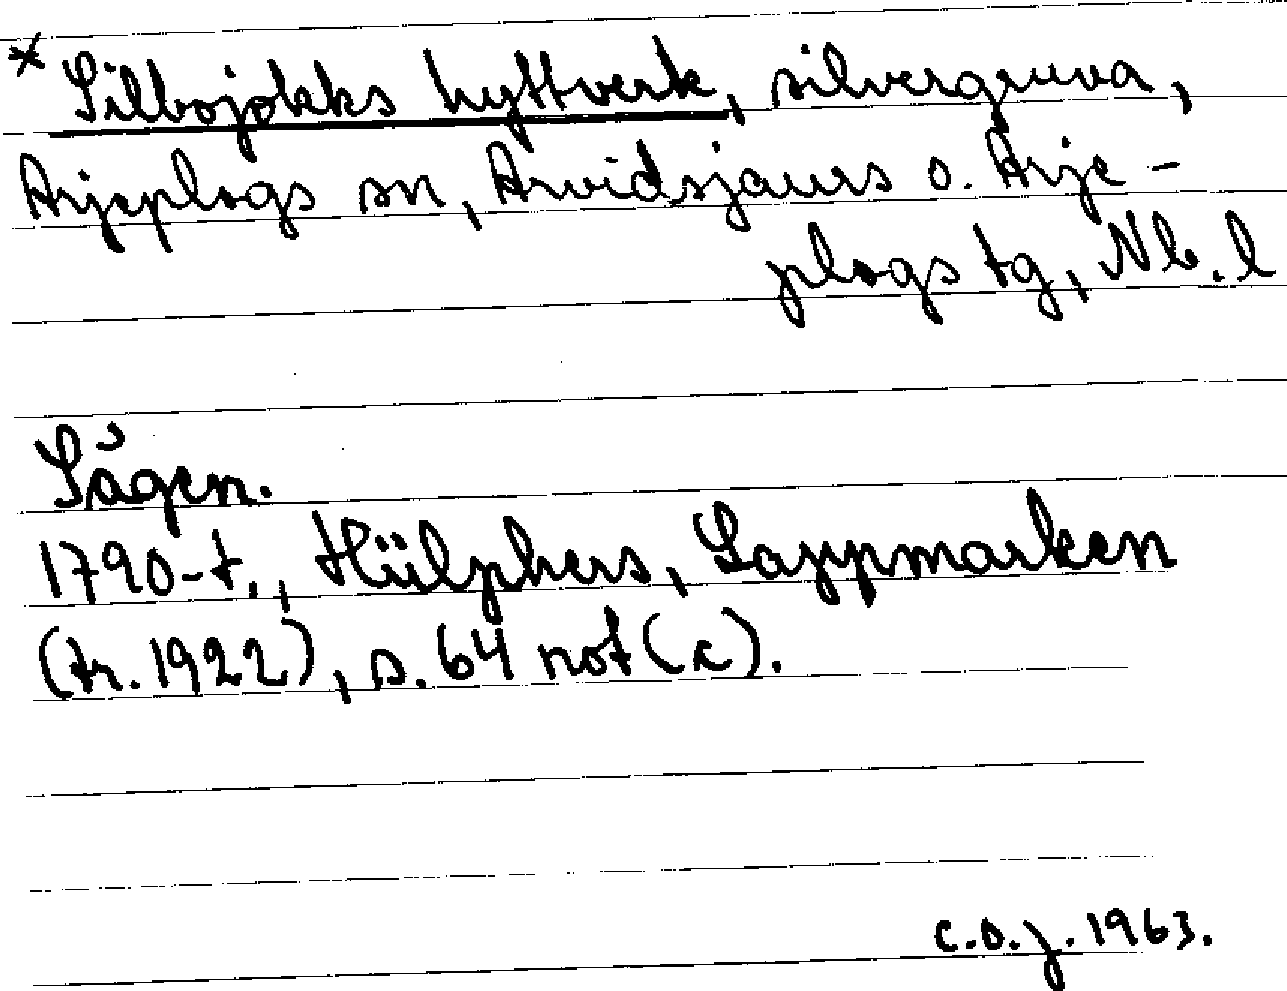 * Silbojokks hyttverk, silvergruva,
Arjeplogs sn, Arvidsjaurs o. Arje-
plogs tg, Nb. l
Sågen.
1790-t., Hülphers, Lappmarken
(tr. 1922), s. 64 not (x).
C.O.J. 1963.